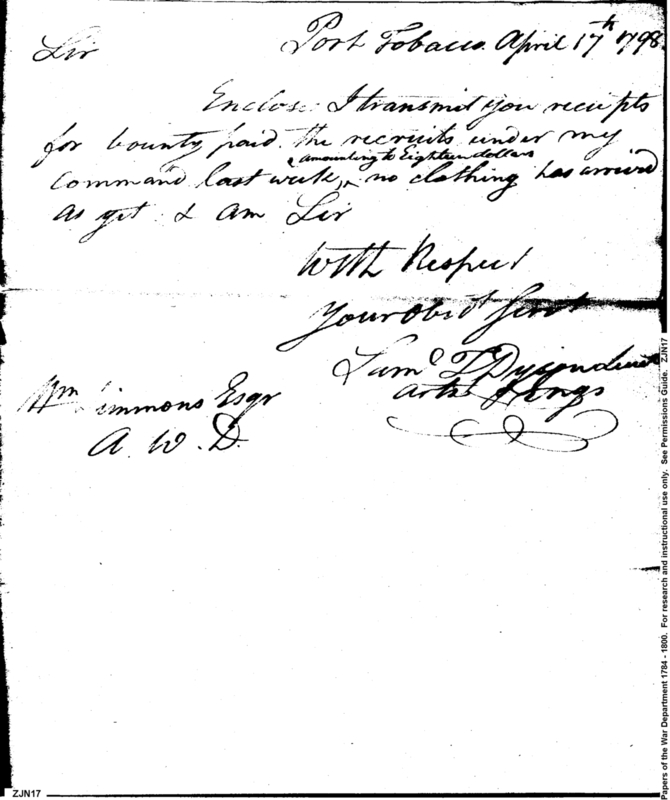 Port Tobacco April 17th 1798
Sir
Enclose I transmit you receipts
for bounty paid the recruits under my
amounting to Eighteen dollars
command last week, no clothing has arrived
as yet. I am Sir
With Respect
Your Obdt Servt
Saml T Dyson Lieut
Wm Simmons Esqr
A. W. D.
Papers of the War Department 1784 - 1800. For research and instructional use only. See Permissions Guide. ZJN17
ZJN17